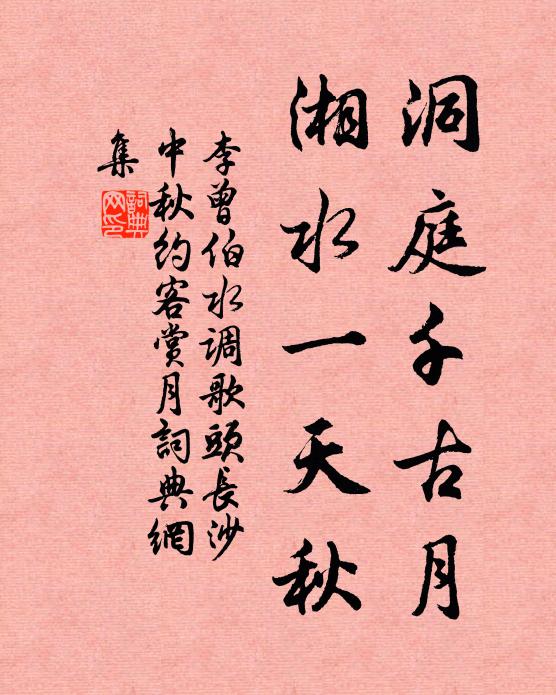 洞庭千古月
湘水一天秋
李曾伯水调歌頭長沙
中秋约客赏月詞典網
集
詞典
网印